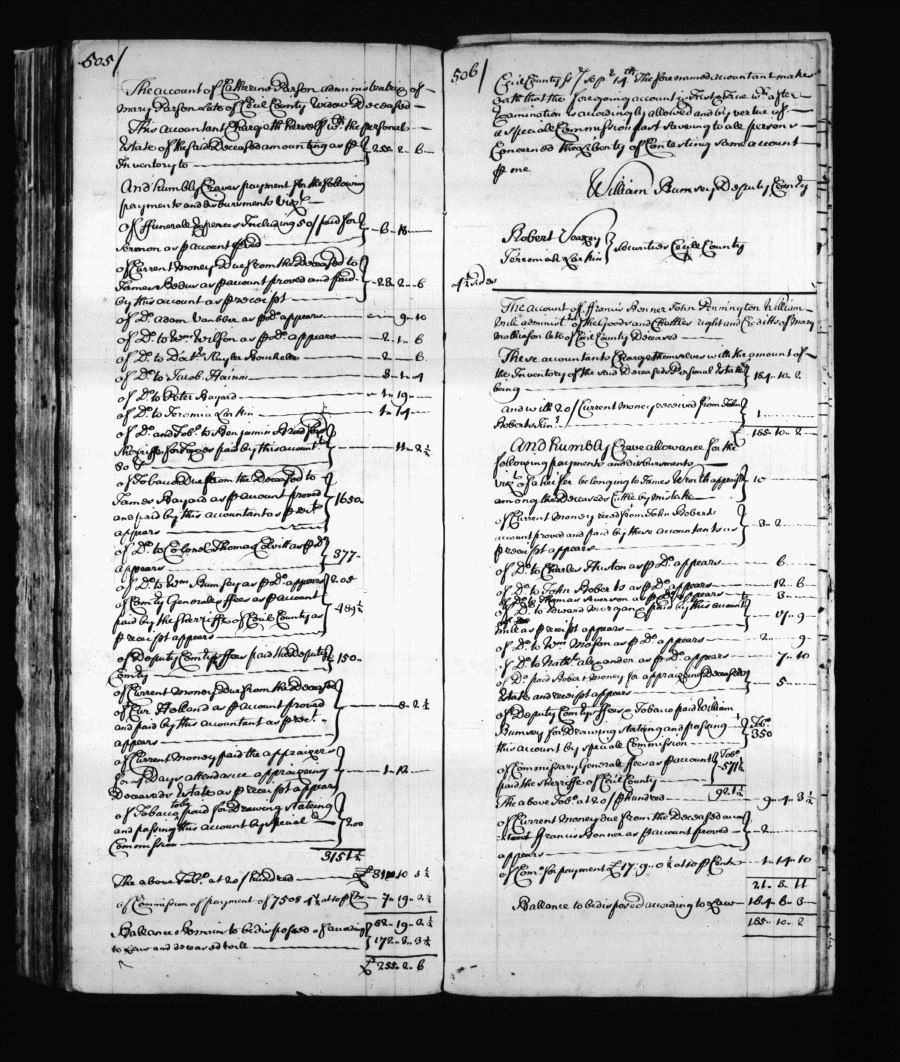 505/
The account of Catherine Parson administratrix of
Mary Parson Late of Cecil County Widow Deceased
This accountant Chargeth herself wth. the personal
Estate of the said Deceased amounting as P
Inventory to 255- 2- 6
And humbly Craves payment for the following
payments and disbursments Vizt.
Of ffunerale Expences Including 50/ paid for
Sermon as P account 6- 18
of Current Money Due from the Deceased to
James as P account proved and paid
by this account as P receipt 28- 2- 6
of Do. adam Vanbber as P Do. appears 9- 10
of Do. to Wm. Wilson as P Do. appears 2- 1- 6
of Do. to Doctr. 2- 6
of Do. to Jacob 8- 1- 4
of Do. to Peter Bayard 1- 19
of Do. to Jeremia Larkin 1- 14
of Do. and Tobo. to Benjamin Bradford
Sheriffe for Taxes paid by this account. 11- 2½
80
of Tobacco Due from the Deceased to
James Bayard as P account proved
and paid by this accountant as P rect. 1680
appears
of Do. to Colonel Thomas Colvill as P Do
appears 377
of Do. to Wm. Rumsey as P Do. appears 205
of Comry Generals ffees as P account
paid by the Sherriffe of Cecil County as
P receipt appears 489½
of Deputy Comry ffees paid the Deputy
Comry 150
of Current Money due from the Deceased
Holland as P account proved
and paid by this accountant as P rect. 8- 2½
appears
of Current Money paid the appraizers
for days attendance appraizing
Deceaseds Estate as P receipt appear 1- 12
of Tobacco paid for Drawing stateing
and passing this account by special
Commission 200
3151½
The above Tobo. at 20/ hundred £31 10
of Commission of payment of at 10 P Ct. 7- 19- 2¼
Ballance Remains to be disposed of according 82- 19- 2¼
to Law and deceased will 172- 2- 3¾
£ 255- 2- 6
506/
Cecil County ss 7 Sepr. 14th The forenamed accountant makes
oath that the foregoing account is Just & True wch. after
Examination is accordingly allowed and by vertue of
a speciale Commission past saveing to all persons
Concerned their Liberty of Contesting same account
P me
William Rumsey Deputy Comry
Robert Veazey
Jeremiah Larkin } Securities Cecile County
4½ sides
The account of ffrancis Bonner John Pennington William
Mile administs. of the Goods and Chattles right and Creditts of Mary
Mathiason late of Cecil County Deceased
These accountants Charge themselves with the amount of
the Inventory of the said Deceaseds Personal Estate
being 184- 10- 2
And with 20/ Current Money received from John
Roberts Junr. 1
185- 10- 2
And humbly Crave allowance for the
following payments and disbursments
Vizt. of a heifer belonging to James Worth appraisd
among the Deceaseds Cattle by Mistake 10
of Current Money recd from John Roberts
account proved and paid by these accountants as
P receipt appears 3- 2
of Do. to Charles Huston as P Do. appears 6
of Do. to John Roberts as P Do. appears 12- 6
of Do. to Thomas Severson as P Do. appears 3
of Do. to Edward Morgan & paid by this account
Mile as P receipt appears 17- 9
of Do. to Wm. Mason as P Do. appears 2- 9
of Do. to Nathl. Alexander as P Do. appears 7- 10
of Do. paid Robert Money for appraizeing Deceaseds
Estate and receipt appears 5
of Deputy Comry ffees & Tobaco paid William
Rumsey for Drawing Stateing and passing
this account by speciale Commission Tobo. 350
of Commissary Generale fees as P account
paid the Sherriffe of Cecil County Tobo. 571½
921½
The above Tobo. at 20/ P hundred 9- 4- 3½
of Current Money due from the Deceased
ffrancis Bonner as P account proved 2
appears
of Comn. for payment £17- 9- 0½ at 10 P Cent 1- 14- 10
21- 8- 11
Ballance to be disposed according to Law 164- 6- 3
185- 10- 2